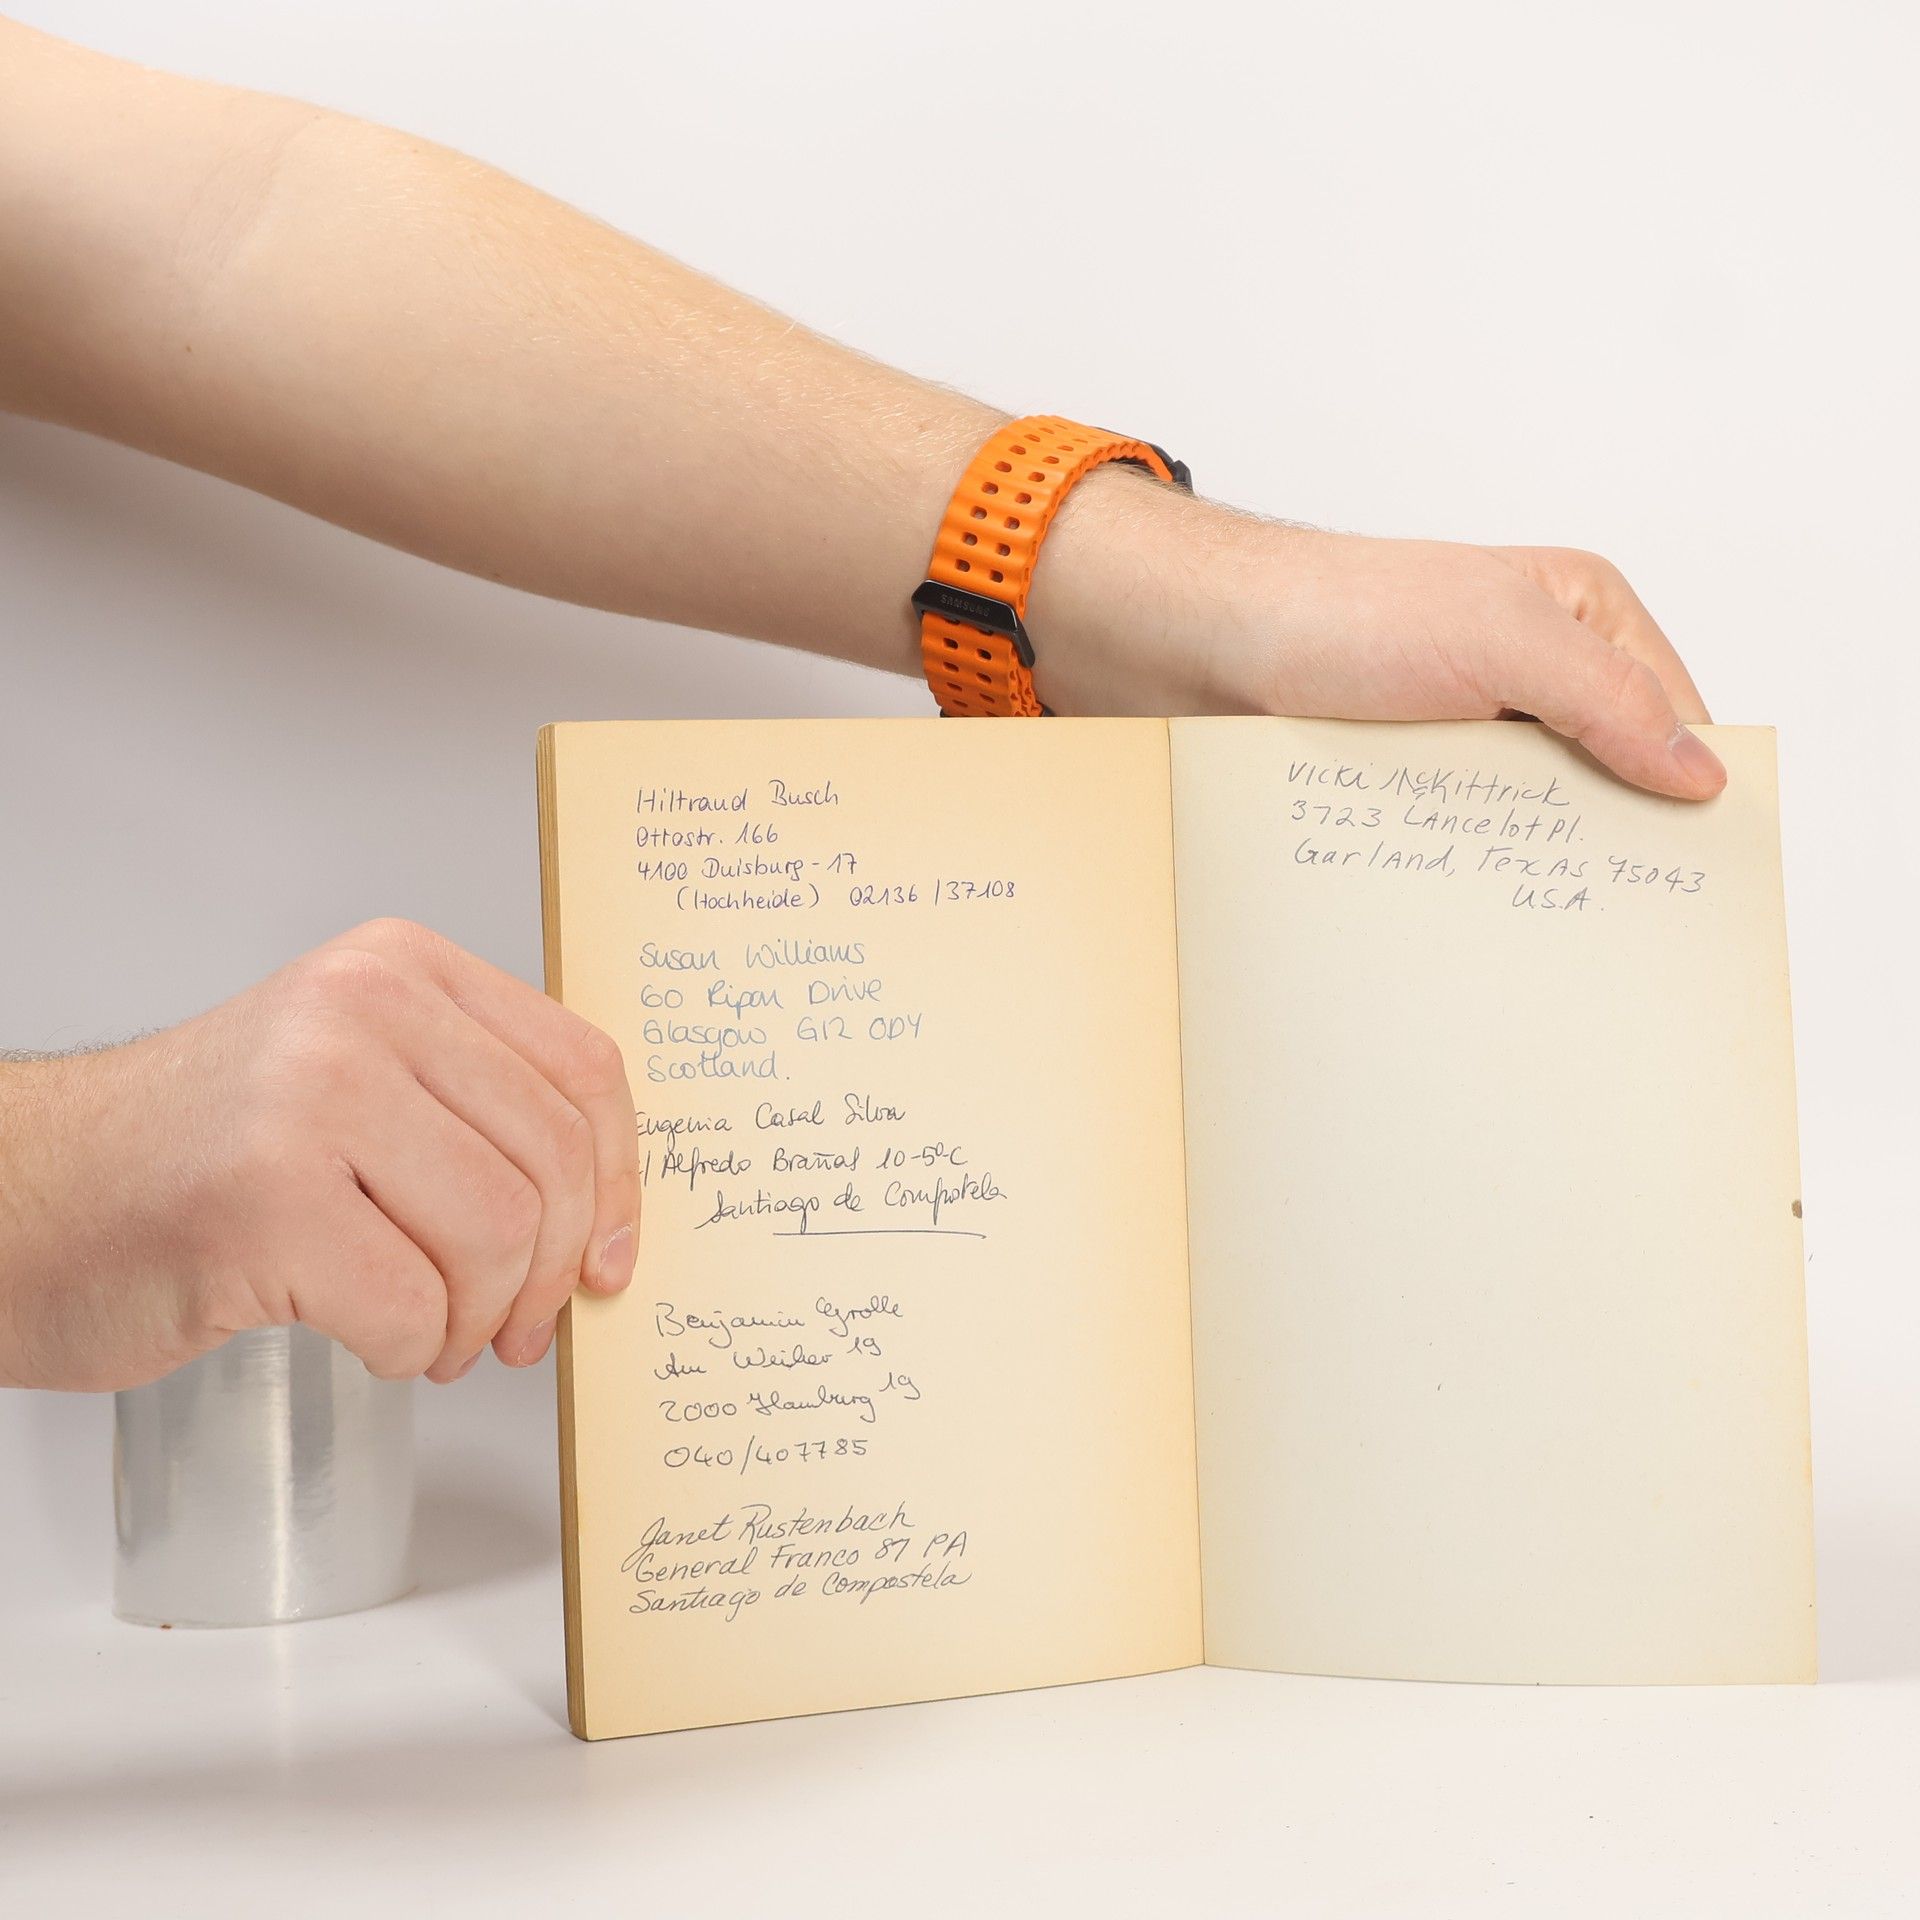 SAMSUNG
Hiltraud Busch
Ottostr. 166
4100 Duisburg-17
(Hochheide) 02136/37108
Susan Williams
60 Ripon Drive
Glasgow G12 0DY
Scotland.
Eugenia Casal Silva
/ Alfredo Brañas 10-5º-C
Santiago de Compostela
Benjamin Grolle
Am Weiher 19
2000 Hamburg 19
040/407785
Janet Rustenbach
General Franco 87 PA
Santiago de Compostela
Vicki McKittrick
3723 Lancelot Pl.
Garland, Texas 75043
U.S.A.